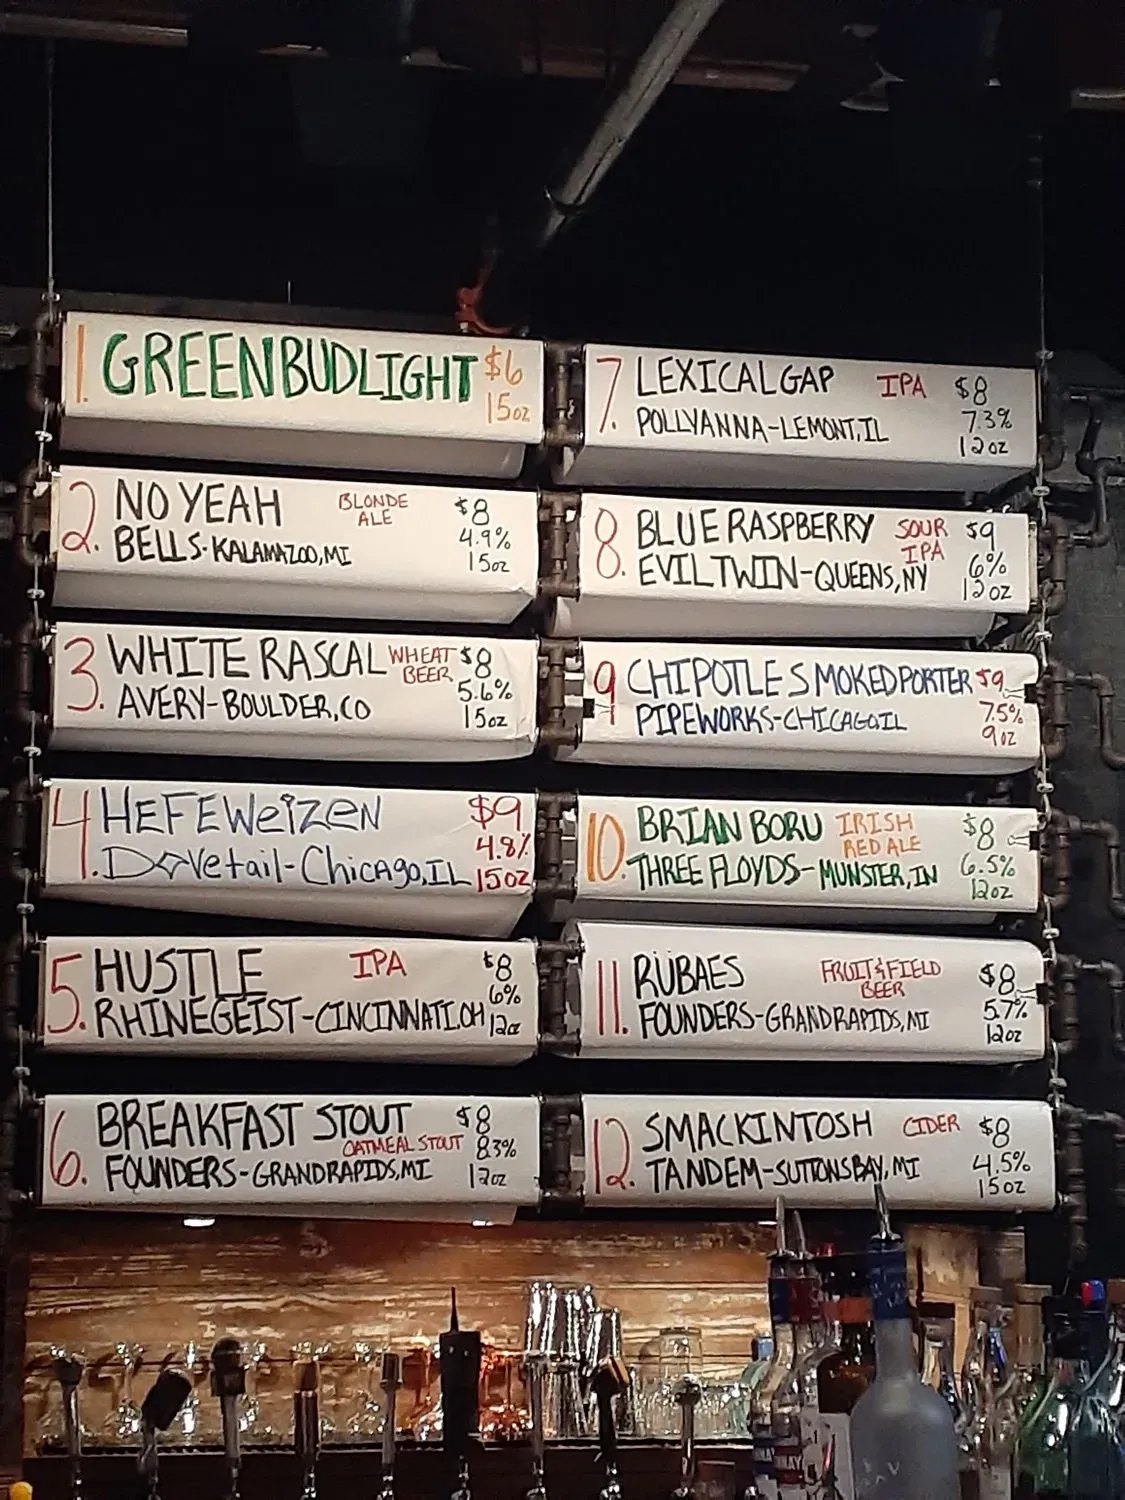 1. GREEN BUD LIGHT $6
15oz
2. NO YEAH BLONDE ALE $8
BELLS-KALAMAZOO,MI 4.9%
15oz
3. WHITE RASCAL WHEAT BEER $8
AVERY-BOULDER,CO 5.6%
15oz
4. HEFEWeiZEN $9
Dovetail-Chicago,IL 4.8%
15oz
5. HUSTLE IPA $8
RHINEGEIST-CINCINNATI.OH 6%
12oz
6. BREAKFAST STOUT OATMEAL STOUT $8
FOUNDERS-GRANDRAPIDS,MI 8.3%
12oz
7. LEXICAL GAP IPA $8
POLLYANNA-LEMONT,IL 7.3%
12oz
8. BLUE RASPBERRY SOUR IPA $9
EVIL TWIN-QUEENS,NY 6%
12oz
9 CHIPOTLE SMOKED PORTER $9
PIPEWORKS-CHICAGO,IL 7.5%
9oz
10. BRIAN BORU IRISH RED ALE $8
THREE FLOYDS-MUNSTER,IN 6.5%
12oz
11. RÜBAES FRUIT & FIELD BEER $8
FOUNDERS-GRANDRAPIDS,MI 5.7%
12oz
12. SMACKINTOSH CIDER $8
TANDEM-SUTTONSBAY,MI 4.5%
15oz